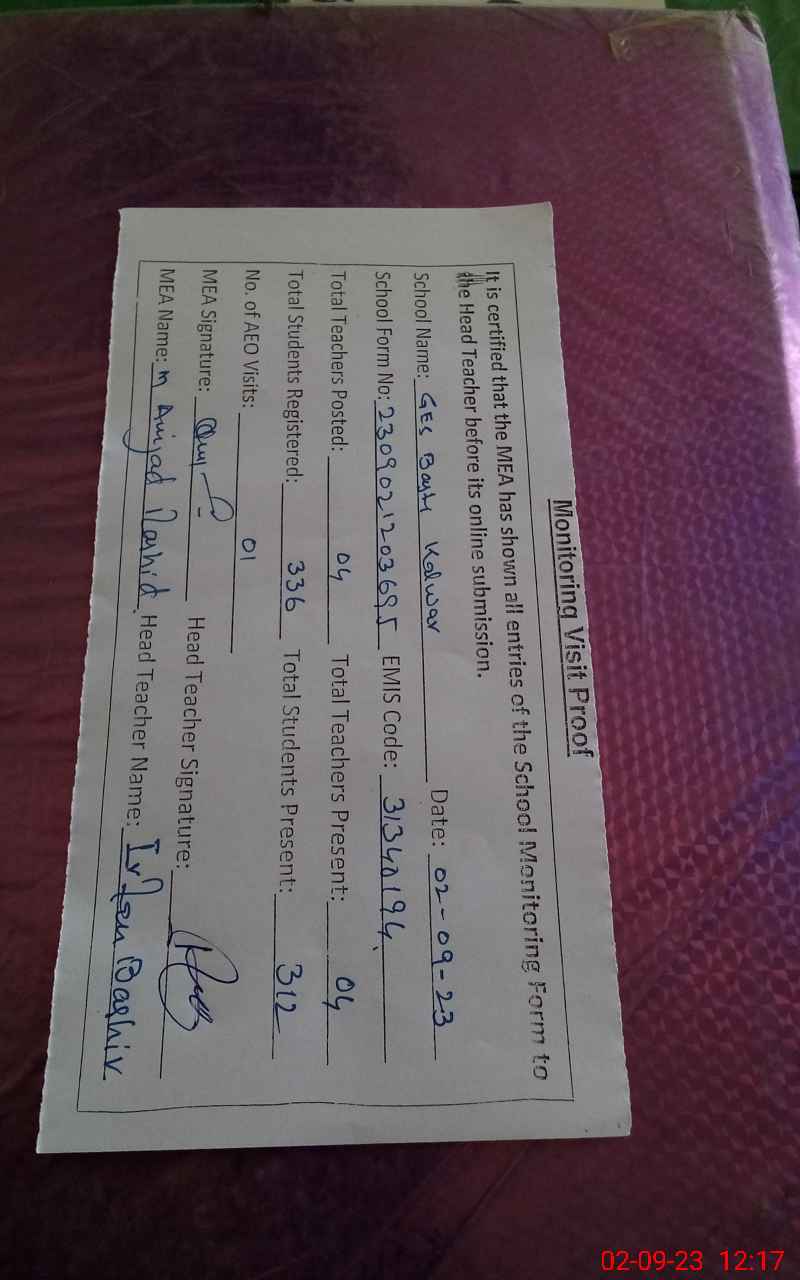 Monitoring Visit Proof
It is certified that the MEA has shown all entries of the School Monitoring Form to
the Head Teacher before its online submission.
School Name: GES Kalwar Date: 02-09-23
School Form No: 2309021203695 EMIS Code: 31340194
Total Teachers Posted: 04 Total Teachers Present: 04
Total Students Registered: 336 Total Students Present: 312
No. of AEO Visits: 01
MEA Signature: Head Teacher Signature:
MEA Name: M Amjad Rashid Head Teacher Name: Irfan Bashir
02-09-23 12:17